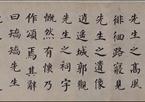 先生之高風
徘徊路寢見
先生之遺像
逍遥城郭觀
先生之祠宇
慨然有懷乃
作頌焉其辭
曰矯矯先生